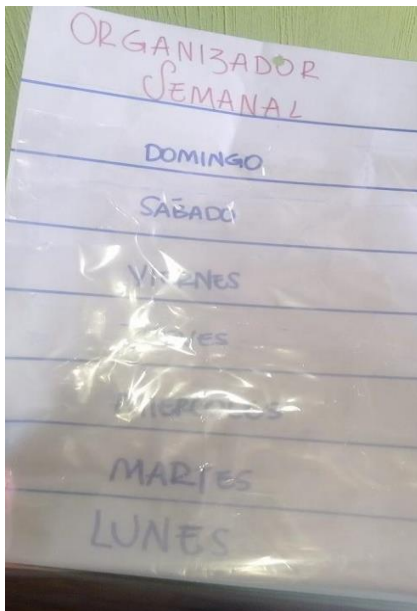 ORGANIZADOR
SEMANAL
DOMINGO
SÁBADO
VIERNES
MIERCOLES
MARTES
LUNES